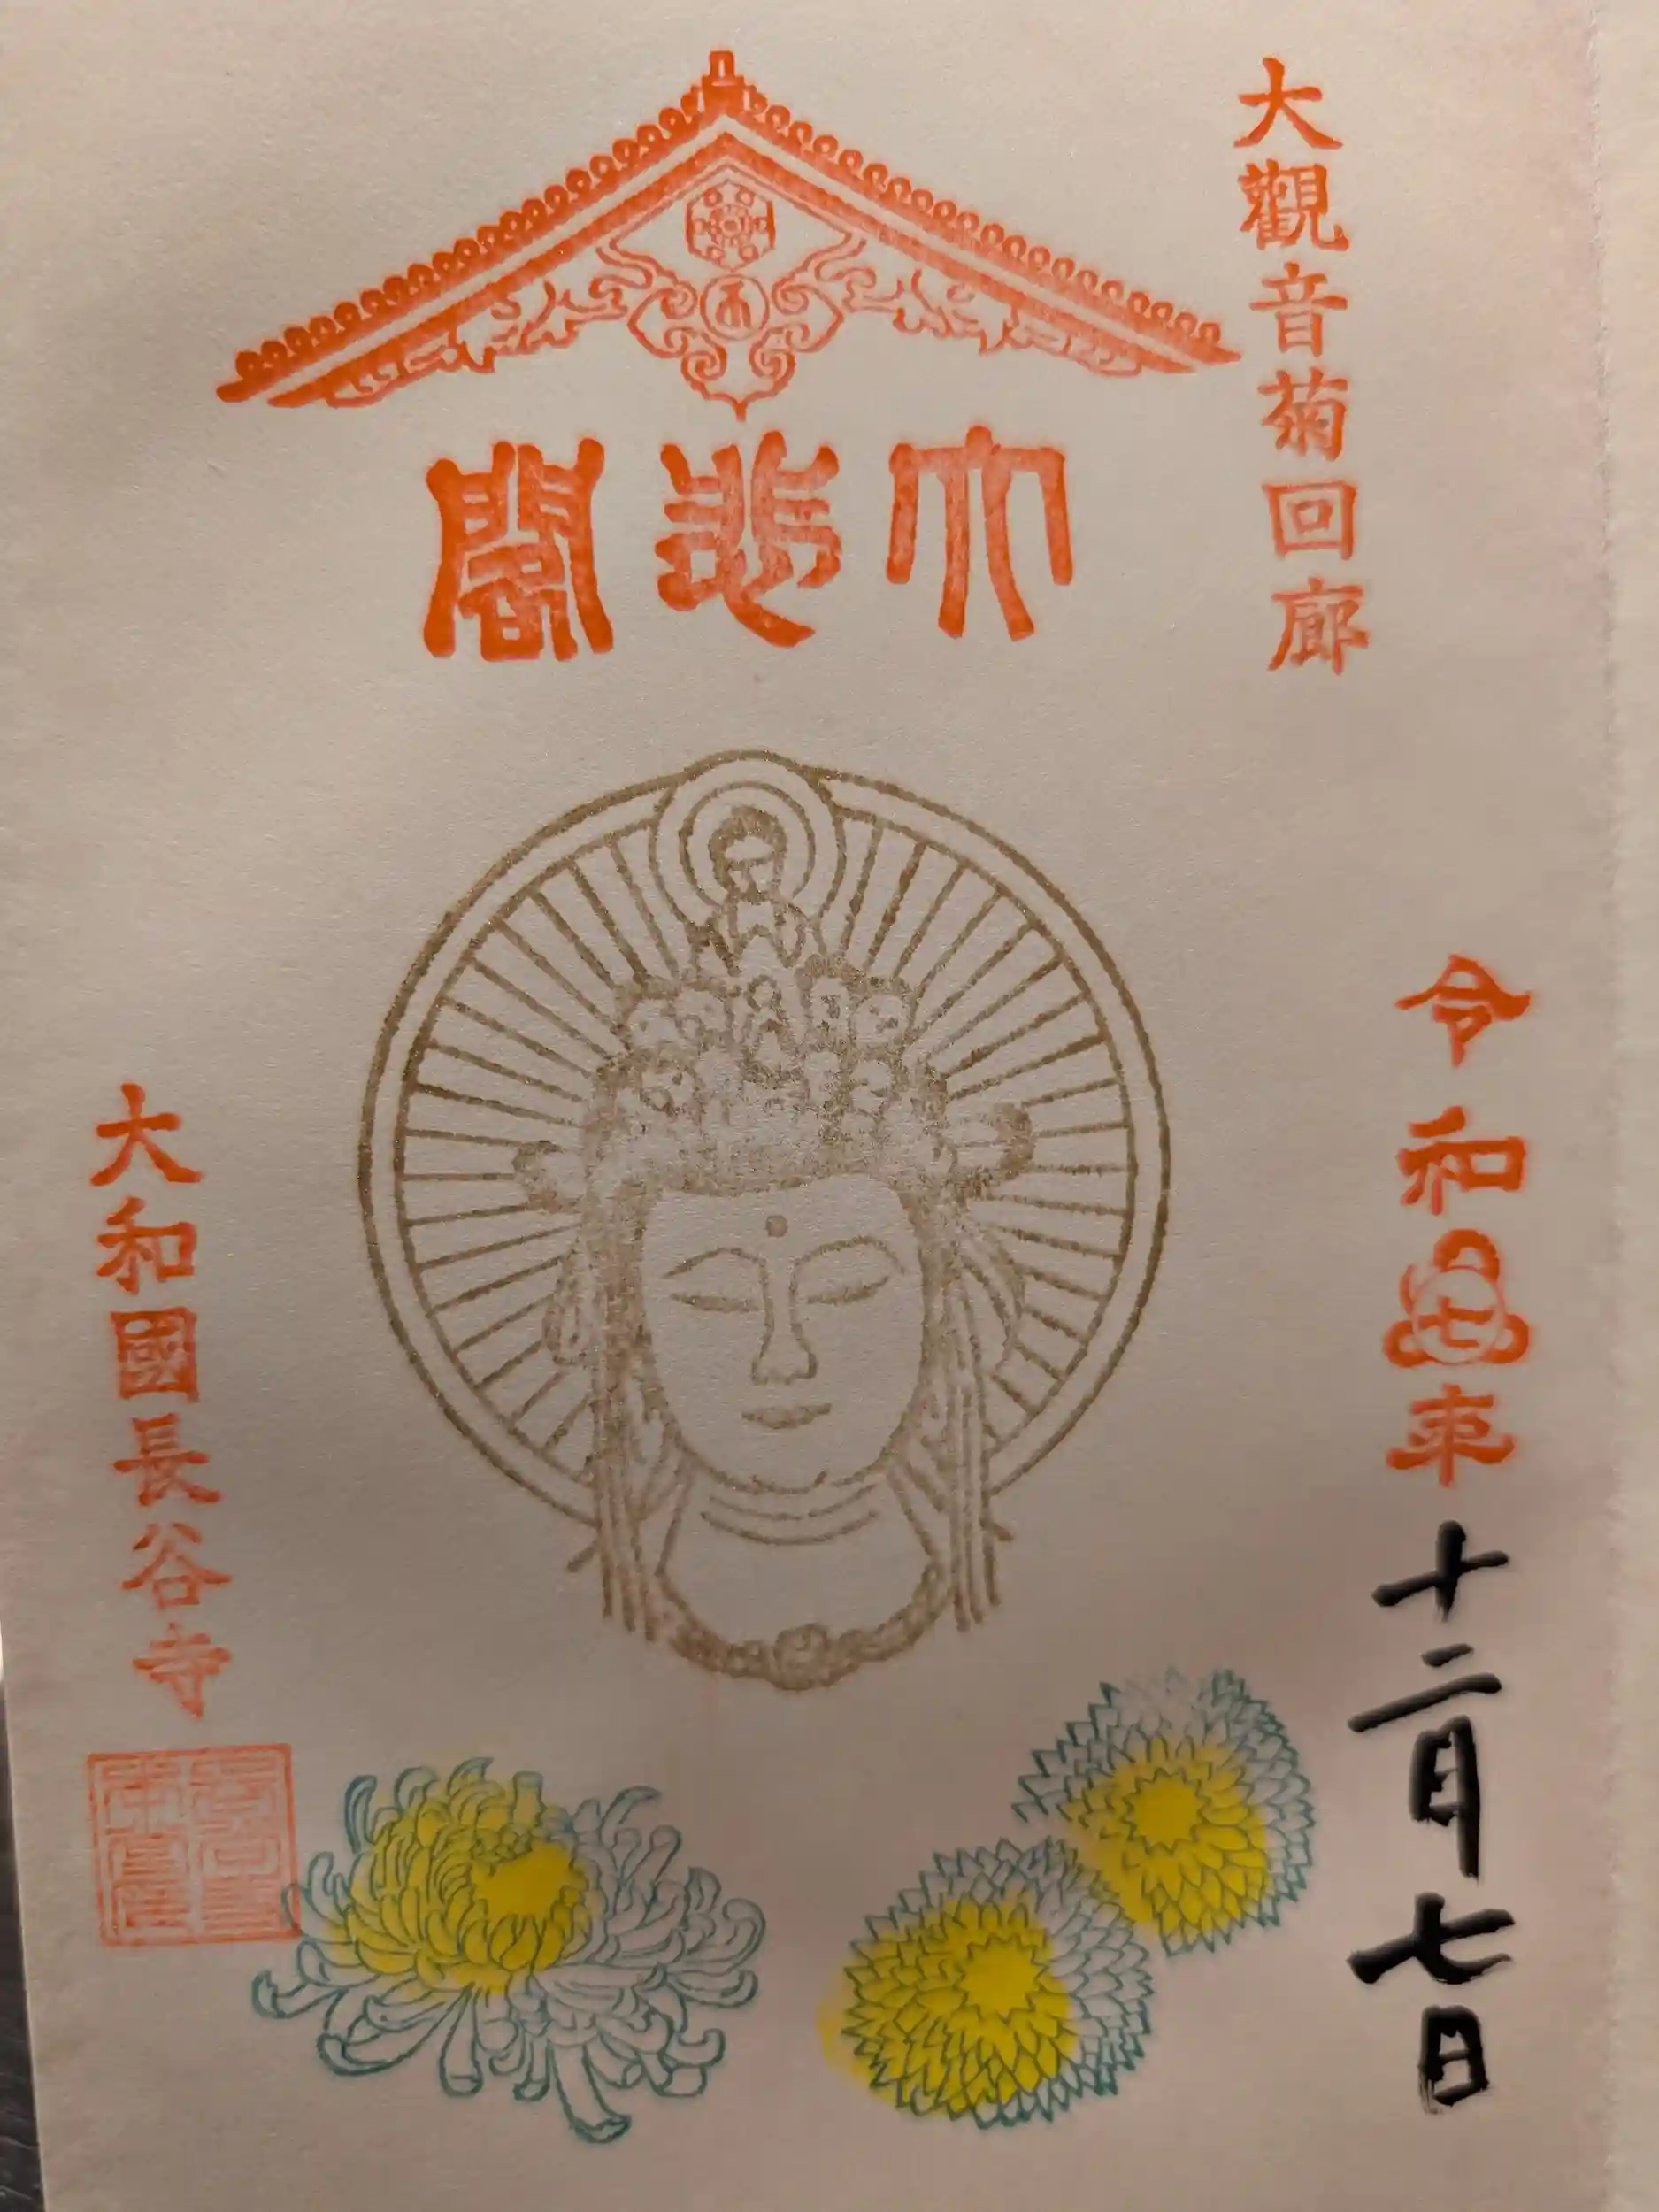 大觀音菊回廊
大悲閣
令和七年十二月七日
大和國長谷寺